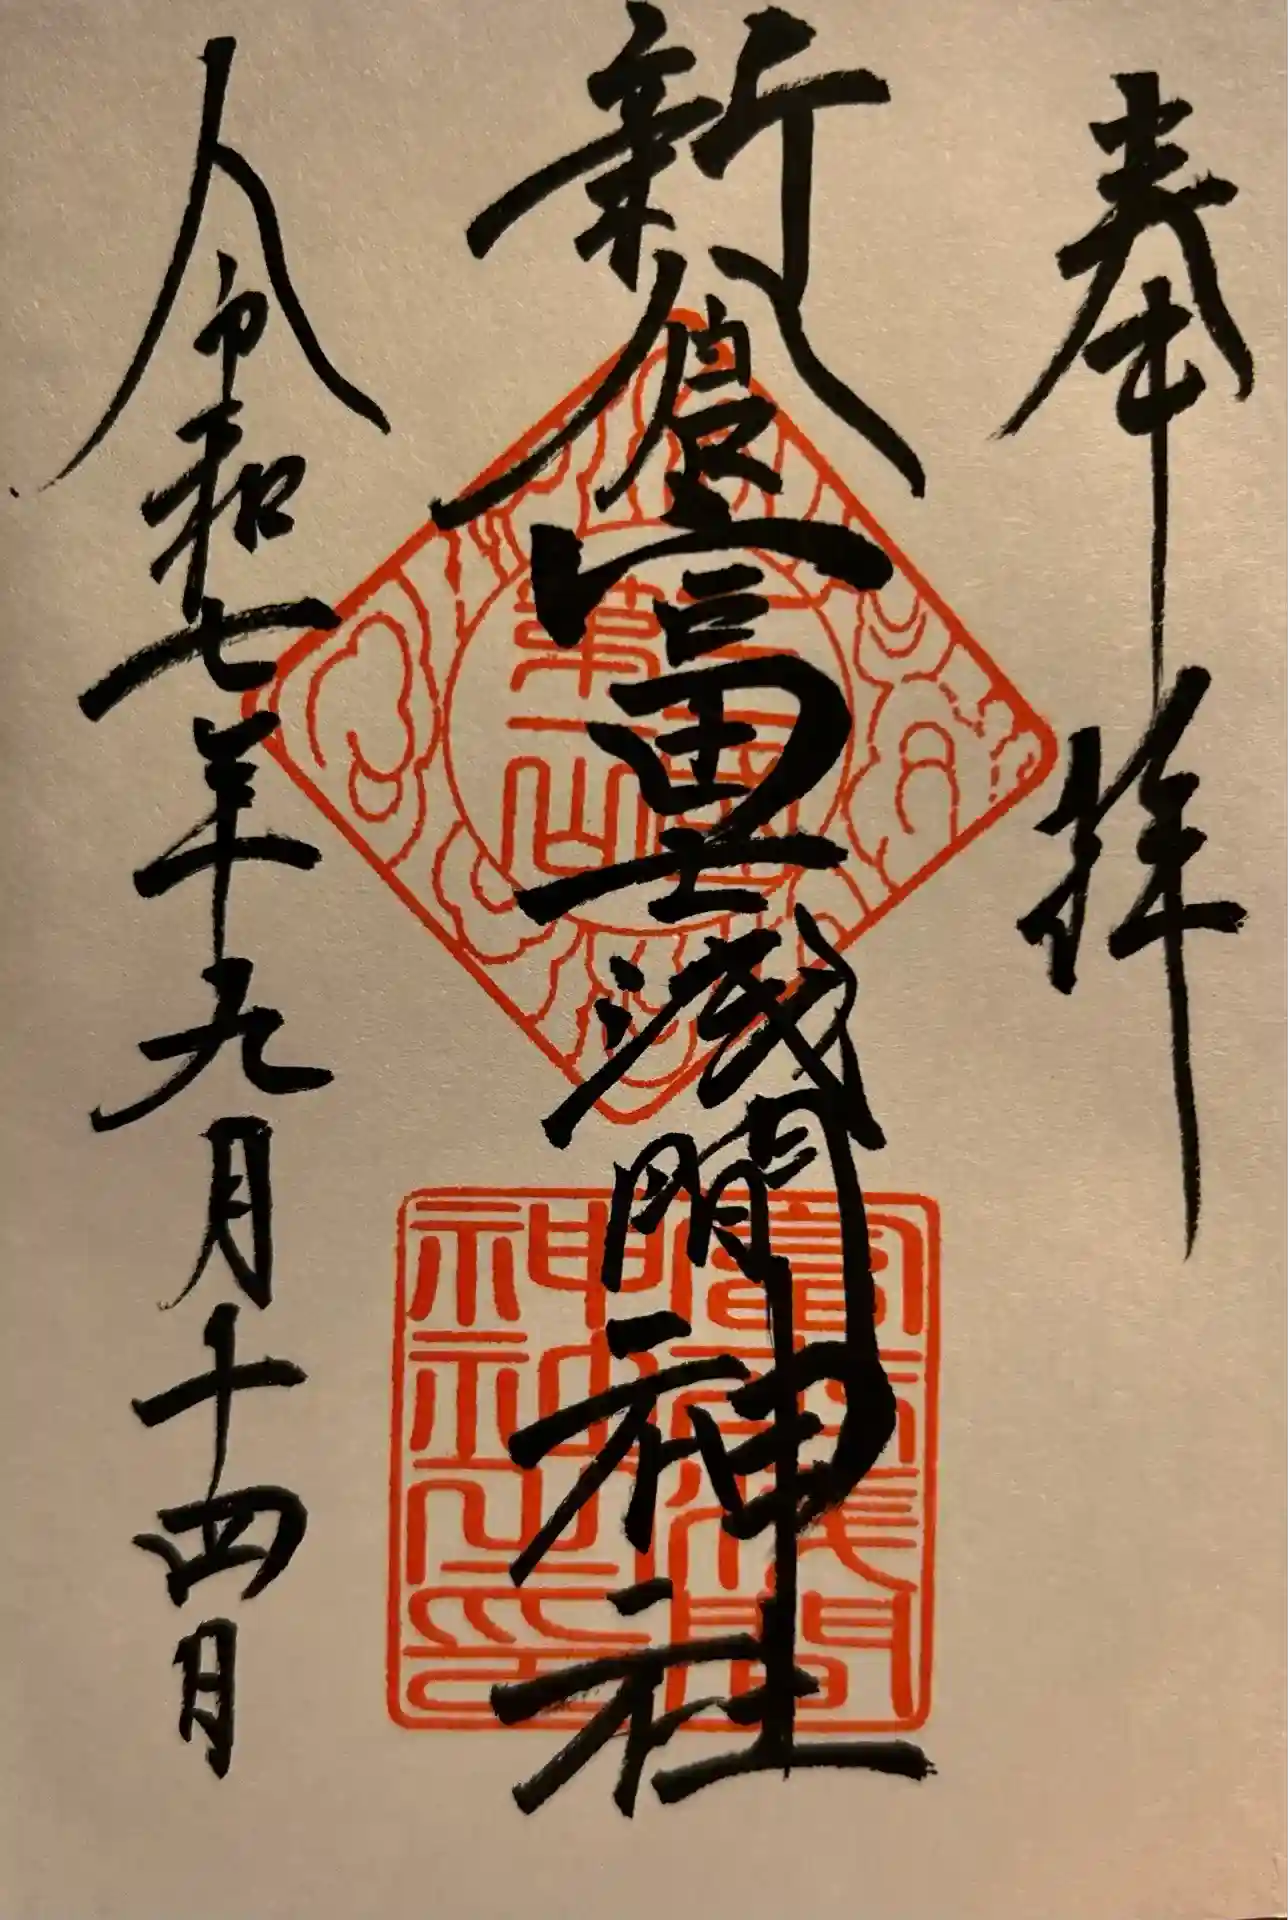 奉拝
新倉富士浅間神社
三國第一山
富士浅間神社之印
令和七年九月十四日